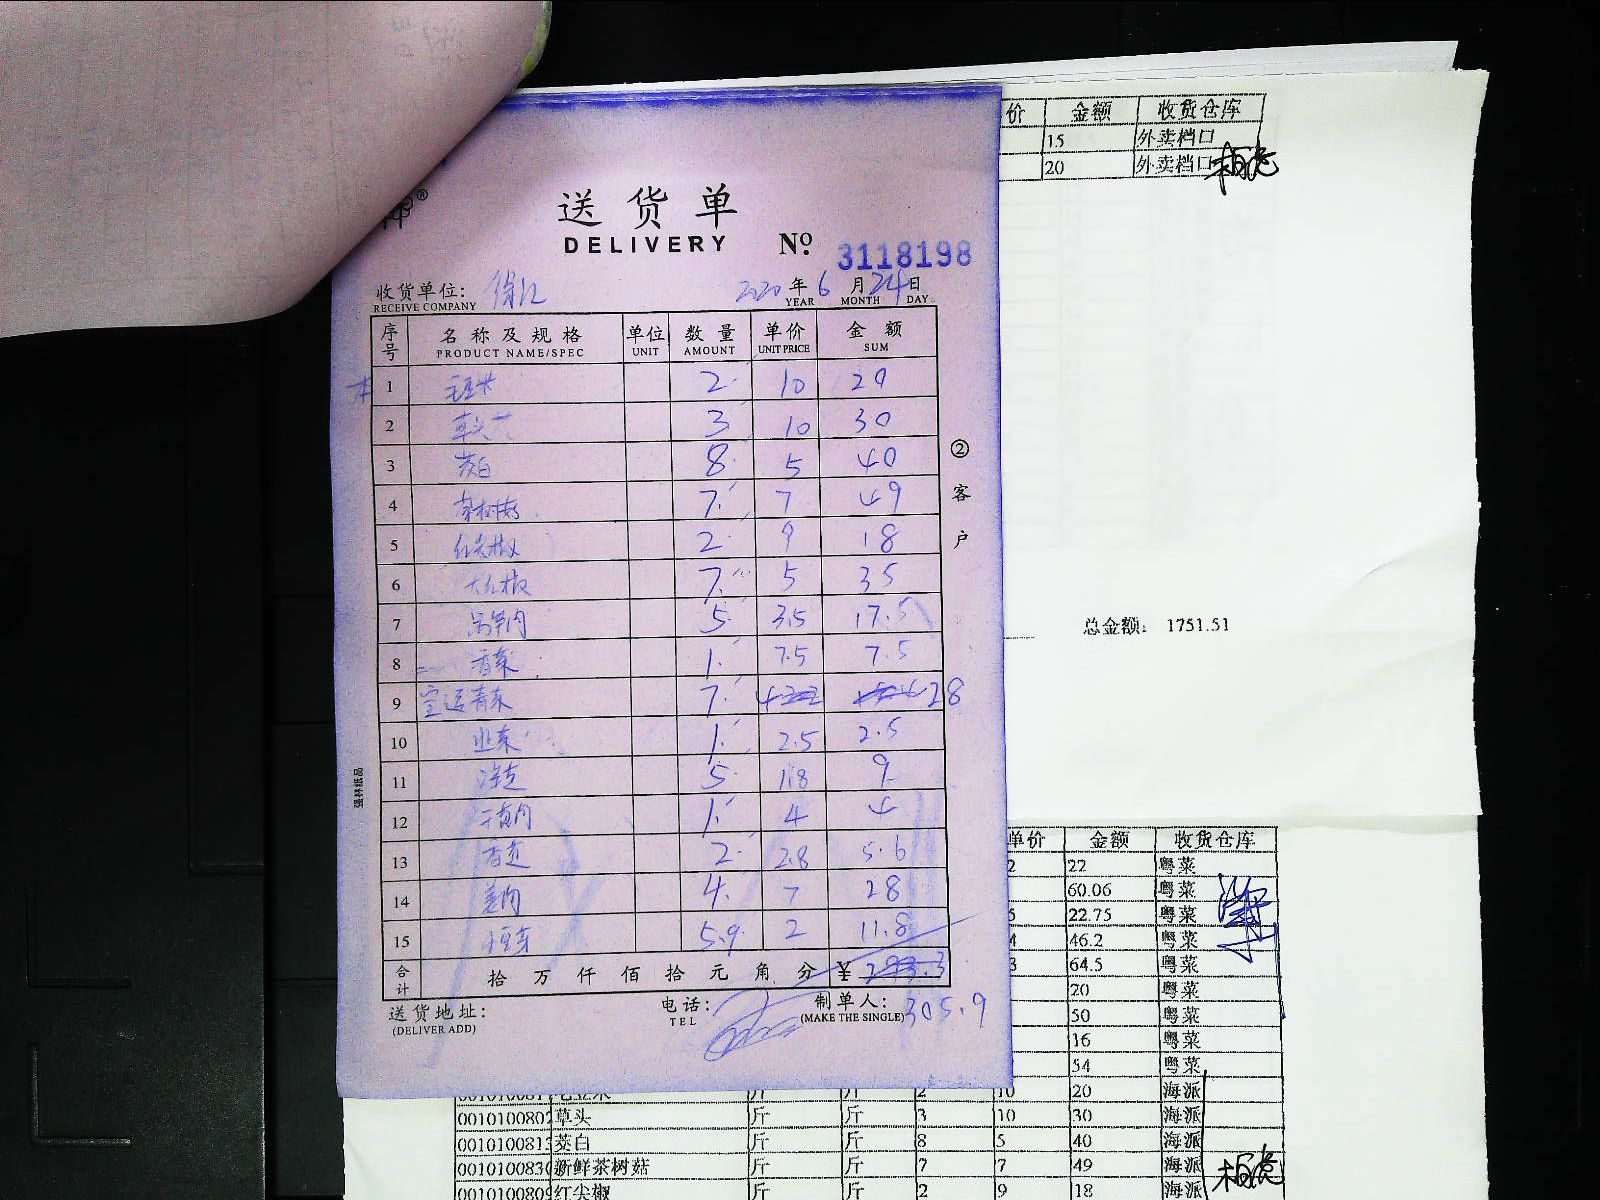 价 金额 收货仓库
15 外卖档口
20 外卖档口
送货单
DELIVERY
№ 3118198
收货单位: 徐汇
RECEIVE COMPANY
2020年6月24日
YEAR MONTH DAY
序号 名称及规格 单位 数量 单价 金额
PRODUCT NAME/SPEC UNIT AMOUNT UNIT PRICE SUM
1 毛豆米 2 10 20
2 草头 3 10 30
3 茭白 8 5 40
4 茶树菇 7 7 49
5 红尖椒 2 9 18
6 大红椒 7 5 35
7 莴笋肉 5 3.5 17.5
8 香菜 1 7.5 7.5
9 青菜 7 28
10 韭菜 1 2.5 2.5
11 5 1.8 9
12 1 4 4
13 2 2.8 5.6
14 姜肉 4 7 28
15 5.9 2 11.8
合计 拾万仟佰拾元角分 ¥ 293.3
送货地址:
(DELIVER ADD)
电话:
TEL
制单人:
(MAKE THE SINGLE)
305.9
②客户
强林纸品
总金额: 1751.51
单价 金额 收货仓库
2 22 粤菜
60.06 粤菜
5 22.75 粤菜
4 46.2 粤菜
3 64.5 粤菜
20 粤菜
50 粤菜
16 粤菜
54 粤菜
毛豆米 斤 斤 2 10 20 海派
草头 斤 斤 3 10 30 海派
茭白 斤 斤 8 5 40 海派
新鲜茶树菇 斤 斤 7 7 49 海派
红尖椒 斤 斤 2 9 18 海派